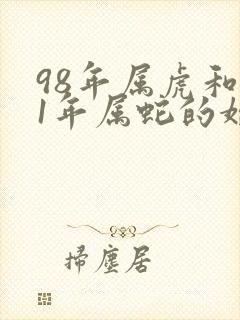 98年属虎和
1年属蛇的
掃塵居